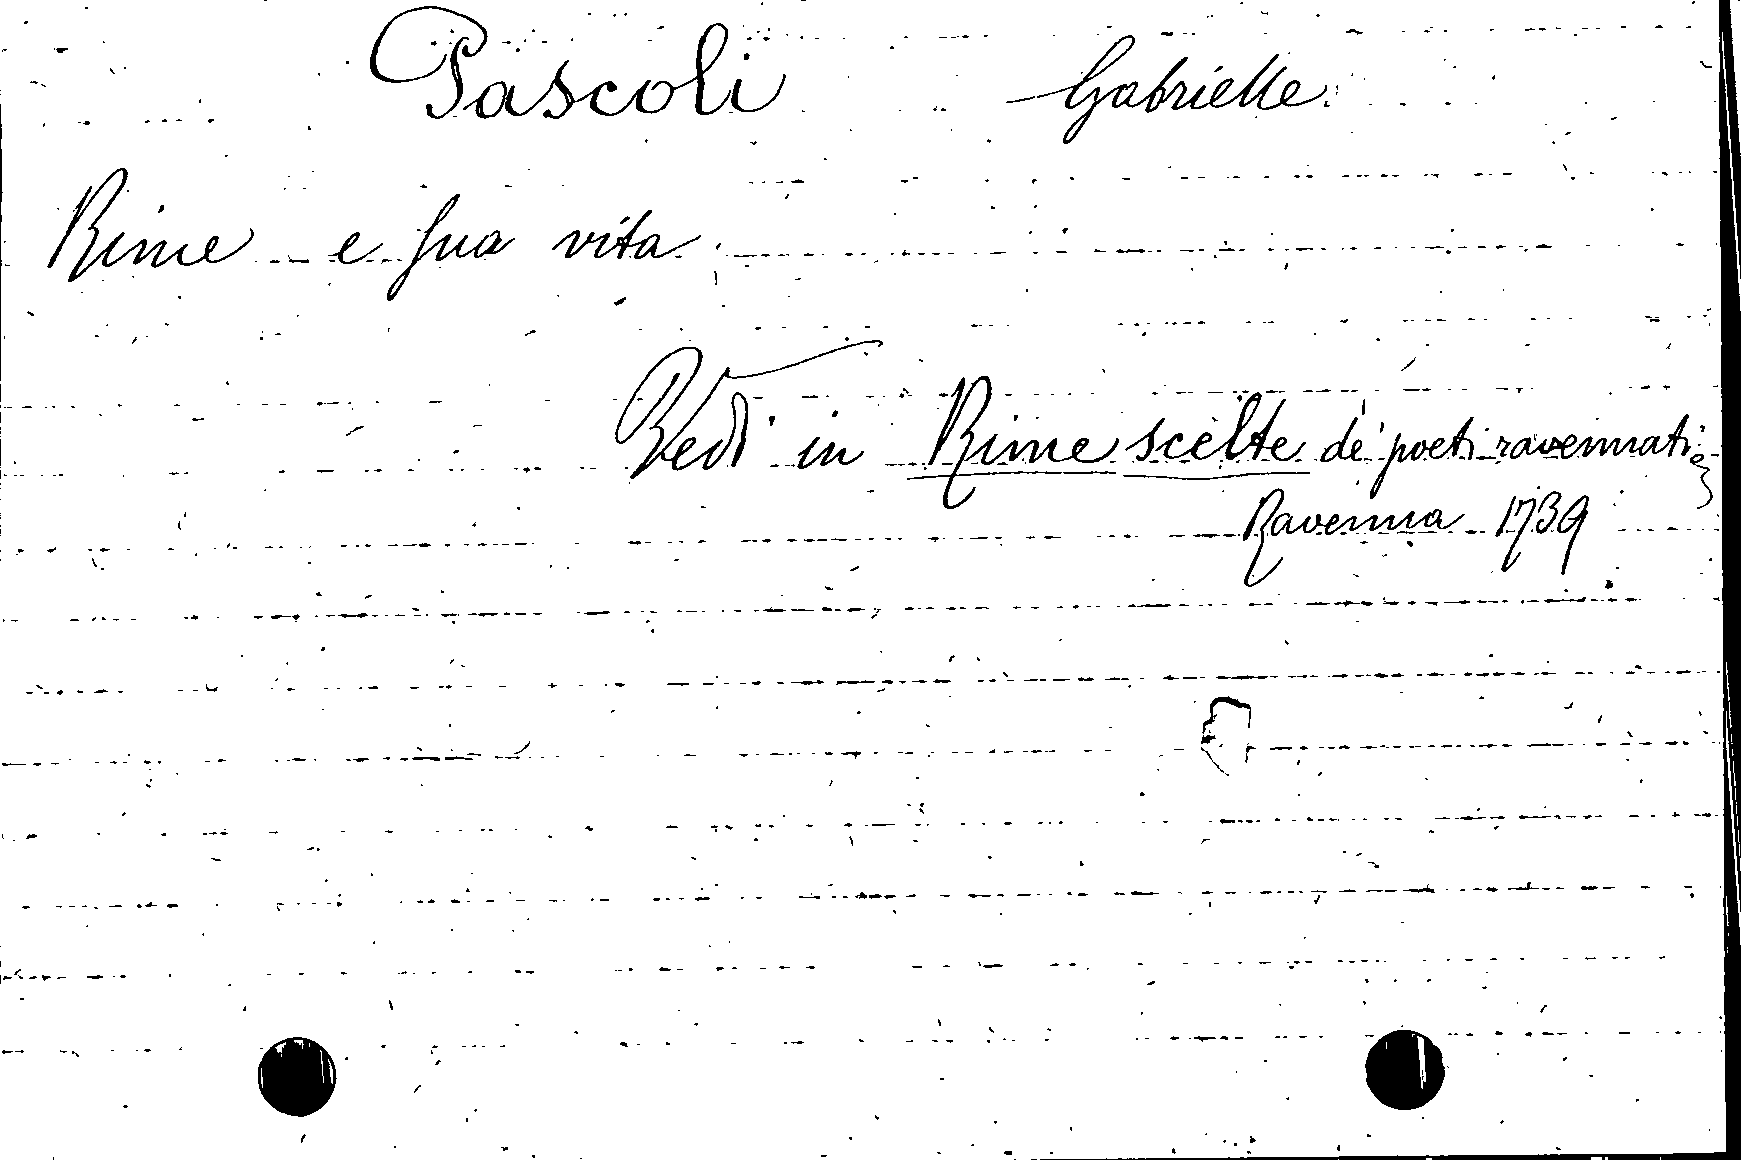 Pascoli Gabrielle
Rime e sua vita.
Vedi in Rime scelte de' poeti ravennati
Ravenna 1739